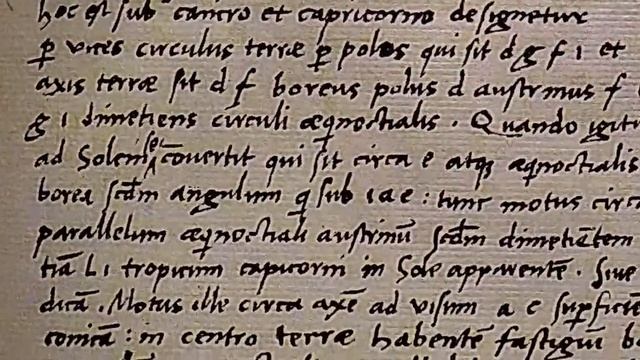 hoc est sub cancro et capricorno designetur
p vices circulus terræ p polos qui sit d g f i et
axis terræ sit d f boreus polus d austrinus f
g i dimetiens circuli æqnoctialis . Quando igit
ad Solem se covertit qui sit circa e atq æqnoctialis
borea scdm angulum q sub i a e : tunc motus circa
parallelum æqnoctiali austrinū scdm dimetiētem
tiā L i tropicum capicorni in Sole apparentē . Sive
dicā . Motus ille circa axē ad visum a e superficie
conicā : in centro terræ habentē fastigiū b